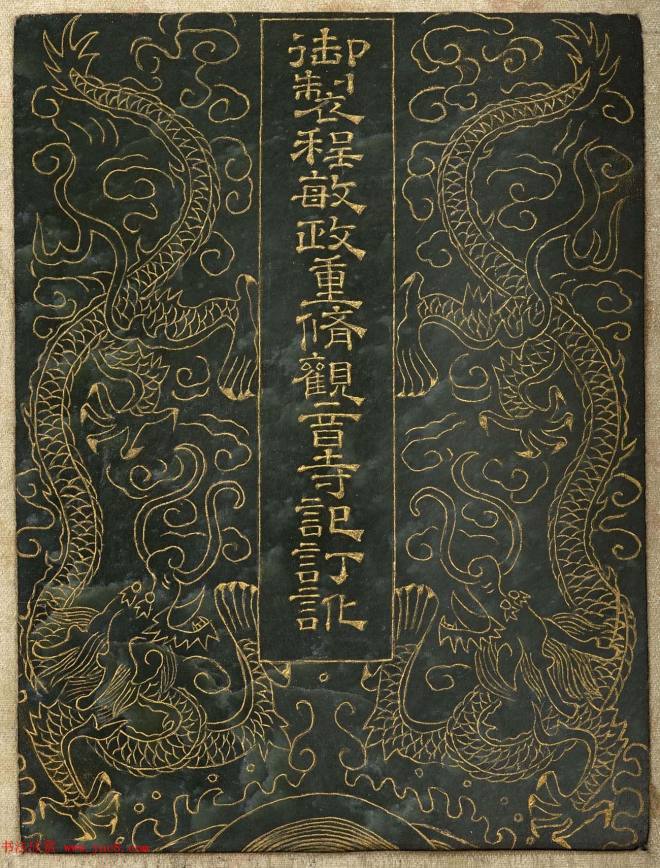 御製程敏政重脩觀音寺記訂訛
书法欣赏 www.yac8.com